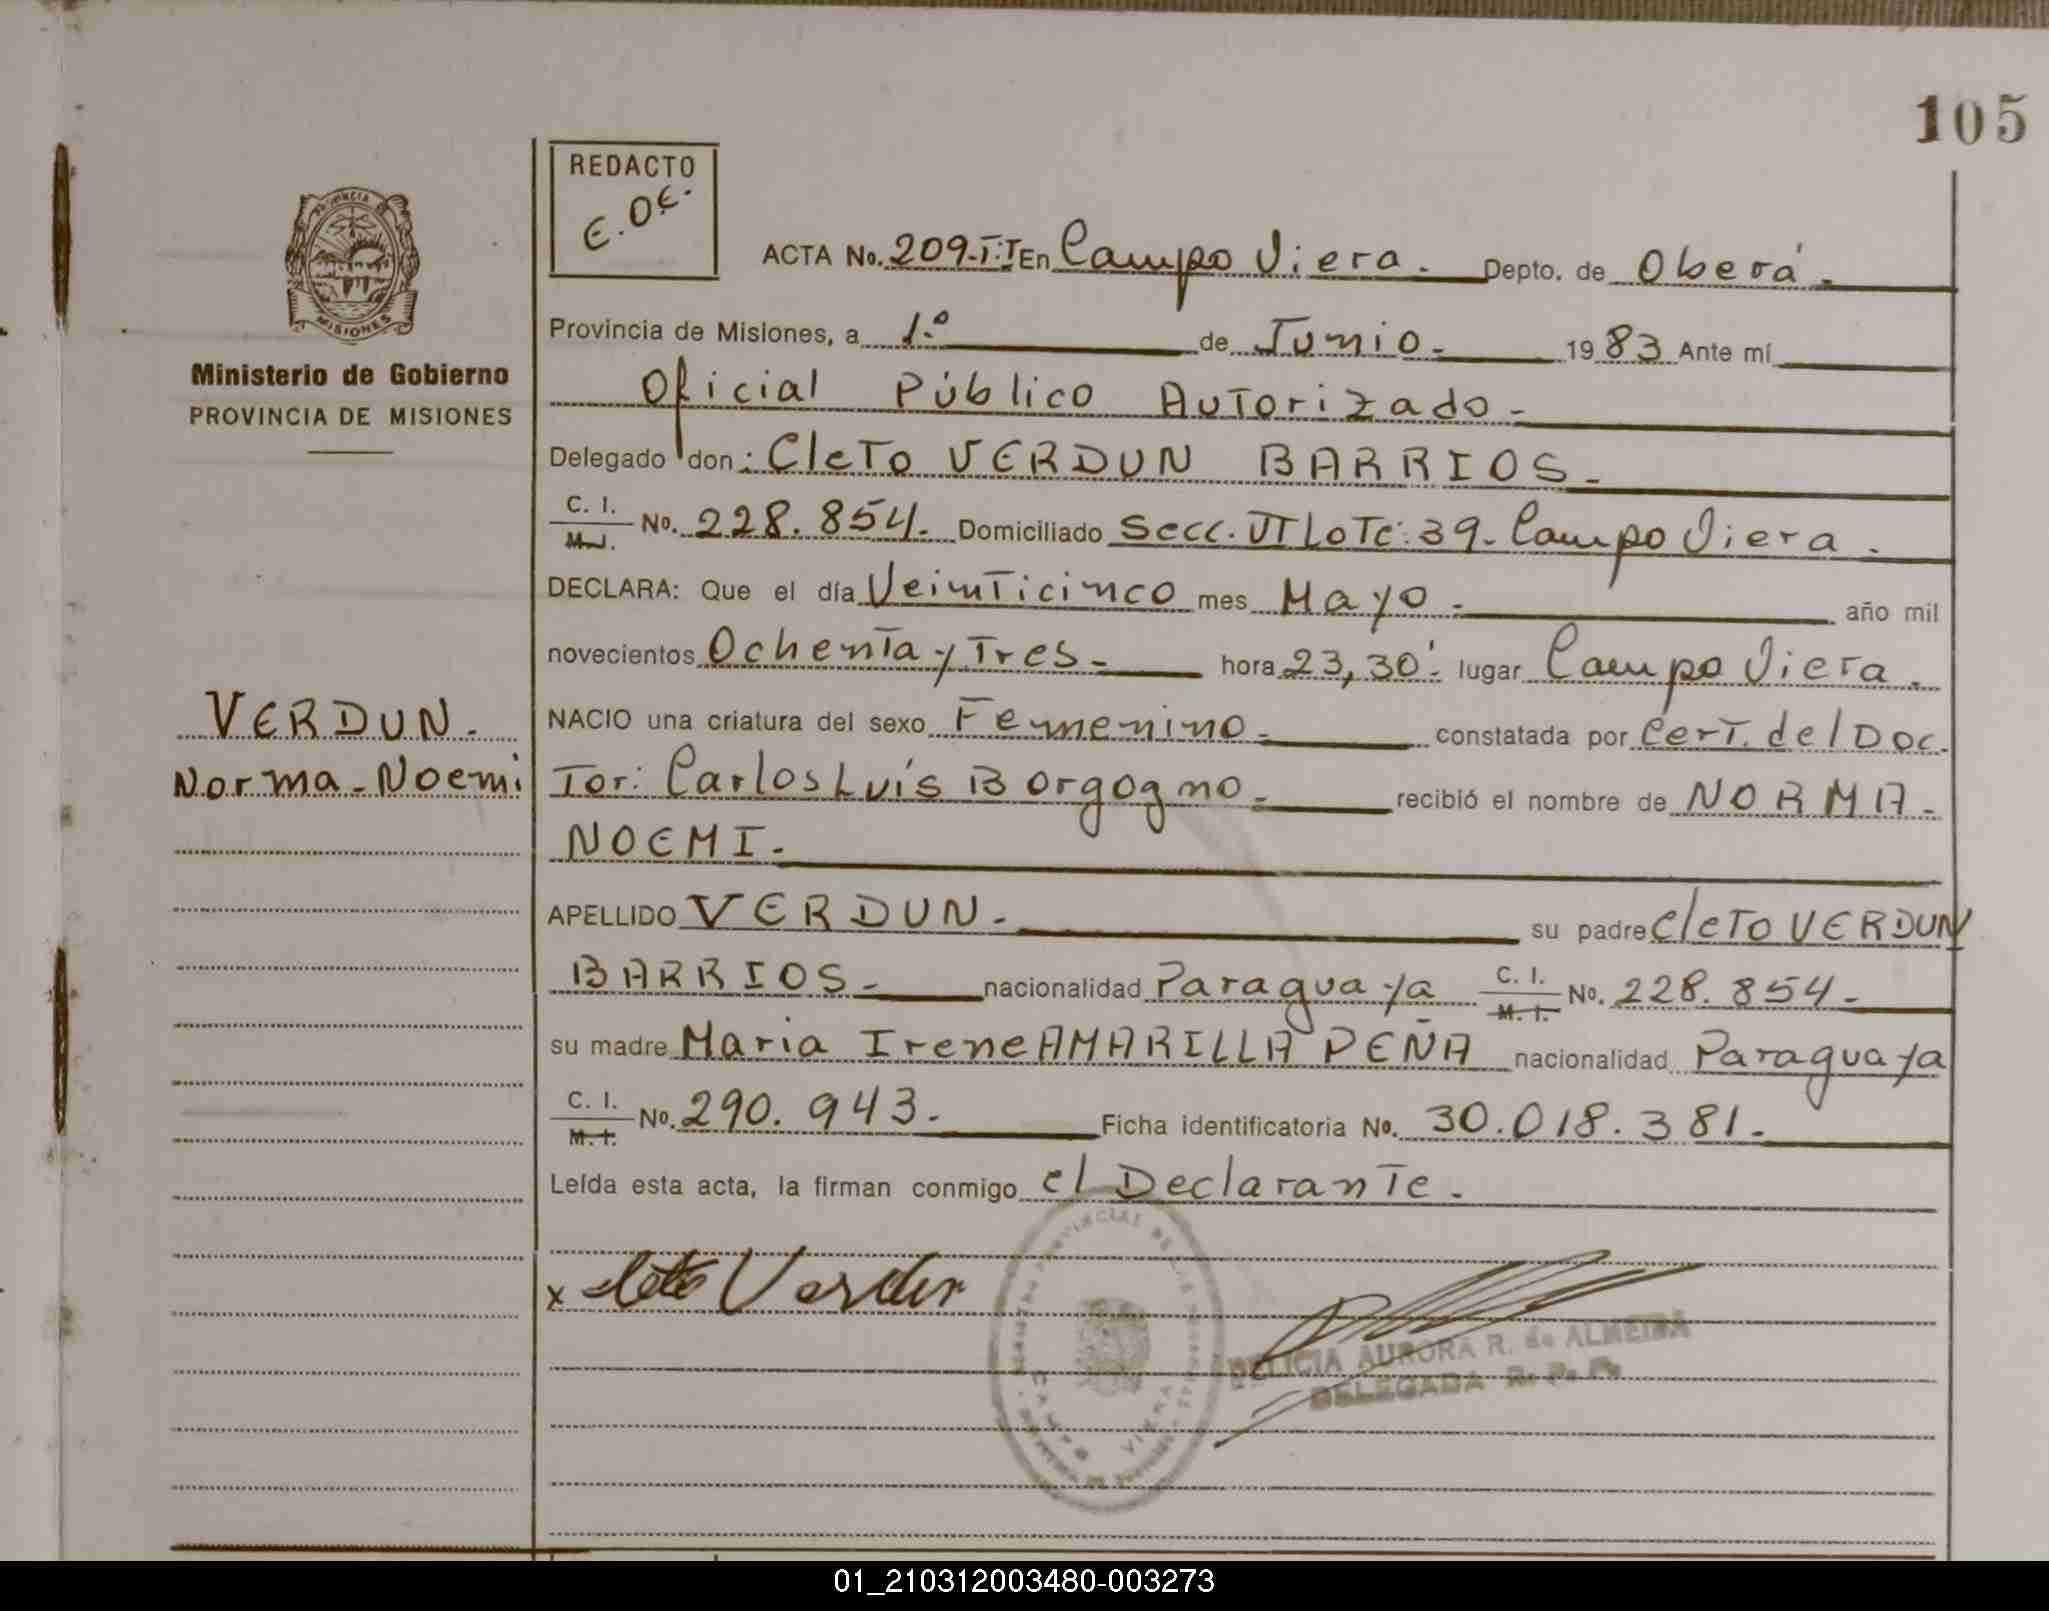 105
REDACTO
E.O.E.
PROVINCIA DE
MISIONES
Ministerio de Gobierno
PROVINCIA DE MISIONES
ACTA No. 209-T:I En Campo Viera. Depto. de Oberá.
Provincia de Misiones, a 1.º de Junio. 1983 Ante mí
Oficial Público Autorizado.
Delegado don: Cleto VERDUN BARRIOS.
C. I. M. I. No. 228.854. Domiciliado Secc. VI Lote: 39. Campo Viera.
DECLARA: Que el día Veinticinco mes Mayo. año mil
novecientos Ochenta y Tres. hora 23,30'. lugar Campo Viera.
NACIO una criatura del sexo Femenino. constatada por Cert. del Doc.
VERDUN.
Norma-Noemi
Tor: Carlos Luís Borgogno. recibió el nombre de NORMA-
NOEMI.
APELLIDO VERDUN. su padre Cleto VERDUN
BARRIOS. nacionalidad Paraguaya C. I. M. I. No. 228.854.
su madre Maria Irene AMARILLA PEÑA nacionalidad Paraguaya
C. I. M. I. No. 290.943. Ficha identificatoria No. 30.018.381.
Leída esta acta, la firman conmigo el Declarante.
x Cleto Verdun
CAMPO VIERA
DELICIA AURORA R. de ALMEIDA
DELEGADA R. P. P.
01_210312003480-003273